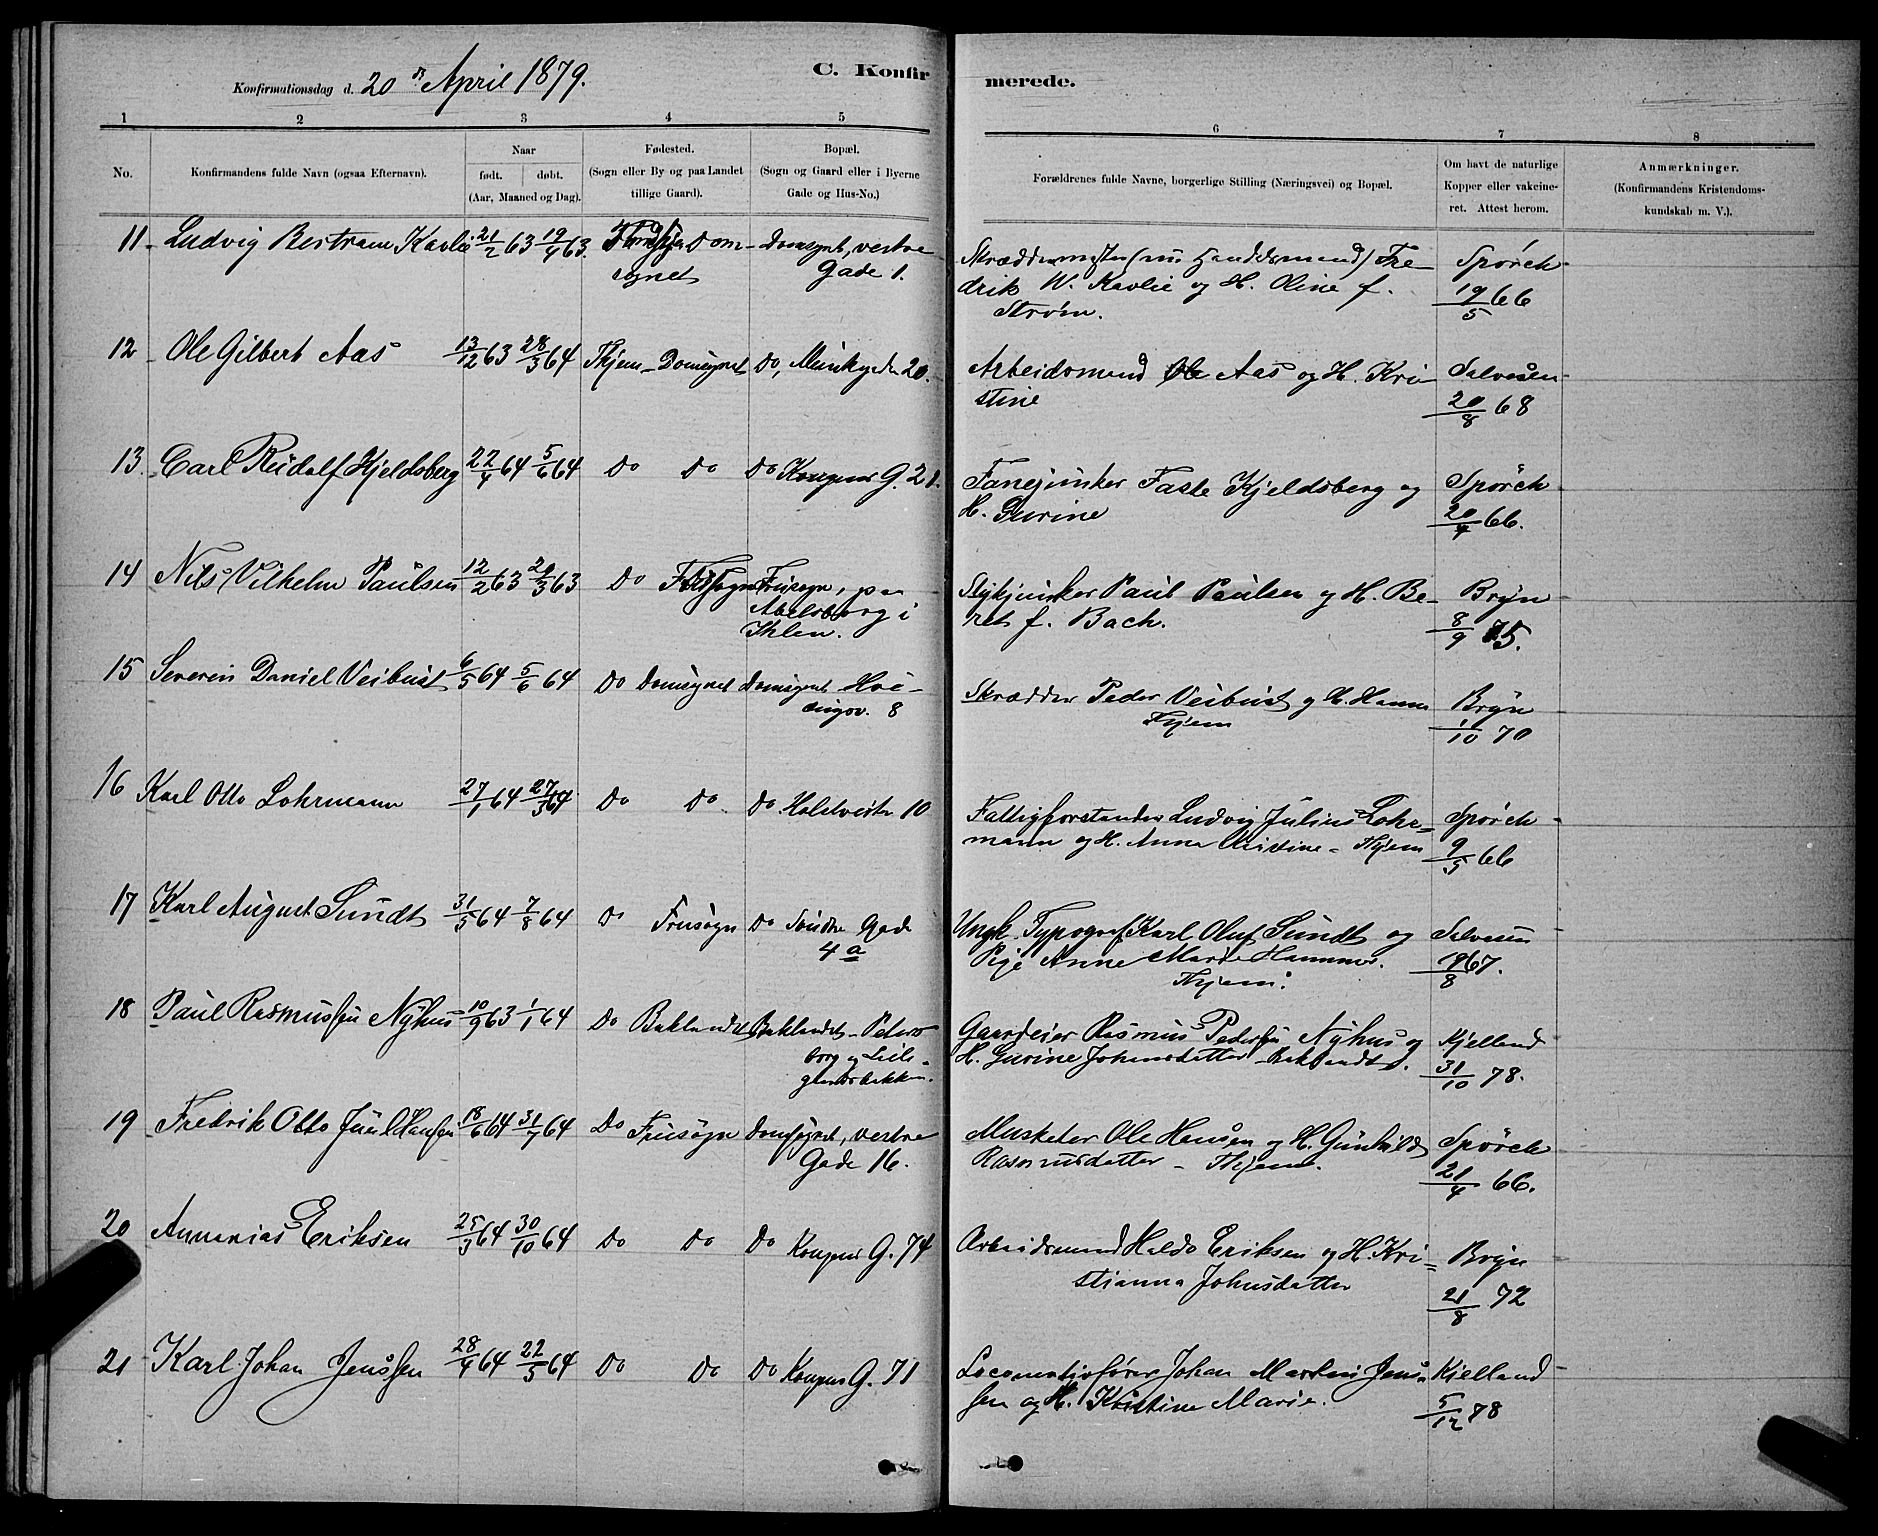 Konfirmationsdag d. 20 de April 1879.
C. Konfir
merede.
1 2 3 4 5
6 7 8
No.
Konfirmandens fulde Navn (ogsaa Efternavn).
Naar
født. døbt.
(Aar, Maaned og Dag).
Fødested.
(Sogn eller By og paa Landet
tillige Gaard).
Bopæl.
(Sogn og Gaard eller i Byerne
Gade og Hus-No.)
Forældrenes fulde Navne, borgerlige Stilling (Næringsvei) og Bopæl.
Om havt de naturlige
Kopper eller vakcine-
ret. Attest herom.
Anmærkninger.
(Konfirmandens Kristendoms-
kundskab m. V.).
11 Ludvig Bertram Kavlie 21/2 63 19/4 63. Thjem Dom- Domsognet, vestre
sognet Gade 1.
Skræddermester (nu Handelsmand) Fre-
drik W. Kavlie og H. Oline f.
Strøm.
Spörck
19/5 66
12 Ole Gilbert Aas 13/12 63 28/3 64 Thjem - Domsognet Do, Munkgaden 20.
Arbeidsmand Ole Aas og H. Kri-
stine
Salvesen
20/8 68
13. Carl Rudolf Kjeldsberg 22/4 64 5/6 64 Do Do Do Kongens G. 21.
Fanejunker Faste Kjeldsberg og
H. Gurine
Spörck
20/4 66.
14 Nils Vilhelm Paulsen 12/2 63 20/3 63 Do Frusogn Frusogn, paa
Abelsborg i
Ihlen.
Stykjunker Paul Paulsen og H. Be-
ret f. Bach.
Bryn
8/9 75.
15 Severin Daniel Veibust 6/5 64 5/6 64 Do Domsognet Domsognet Hoi-
8
Skrædder Peder Veibust og H. Hanna
Thjem
Bryn
1/10 70
16 Karl Otto Lohrmann 27/1 64 27/3 64 Do Do Do. Holstveiten 10
Fattigforstander Ludvig Julius Lohr=
mann og H. Anna Kristine - Thjem
Spörck
9/5 66
17 Karl August Sundt 31/5 64 7/8 64 Do Frusogn Do Søndre Gade
4 a
Ungk. Typograf Karl Oluf Sundt og
Pige Anne Marie Hammer.
Thjem.
Salvesen
19/8 67.
18 Paul Rasmussen Nyhus 10/9 63 1/1 64 Do Baklandet Baklandet - Peters-
borg og Lille-
Gaardeier Rasmus Pedersen Nyhus og
H. Gurine Johnsdatter Baklandet.
Kjelland
31/10 78.
19 Fredrik Otto Juul Hansen 18/6 64 31/7 64 Do Frusogn Domsognet, vestre
Gade 16.
Musketer Ole Hansen og H. Gunhild
Rasmusdatter - Thjem.
Spörck
21/4 66.
20 Annanias Eriksen 25/3 64 30/10 64 Do Do Do Kongens G. 74
Arbeidsmand Haldo Eriksen og H. Kri=
stianna Johnsdatter
Bryn
21/8 72
21 Karl Johan Jenssen 28/4 64 22/5 64 Do Do Do Kongens G. 71
Locomotivfører Johan Martin Jens-
sen og H. Kristine Marie.
Kjelland
5/12 78